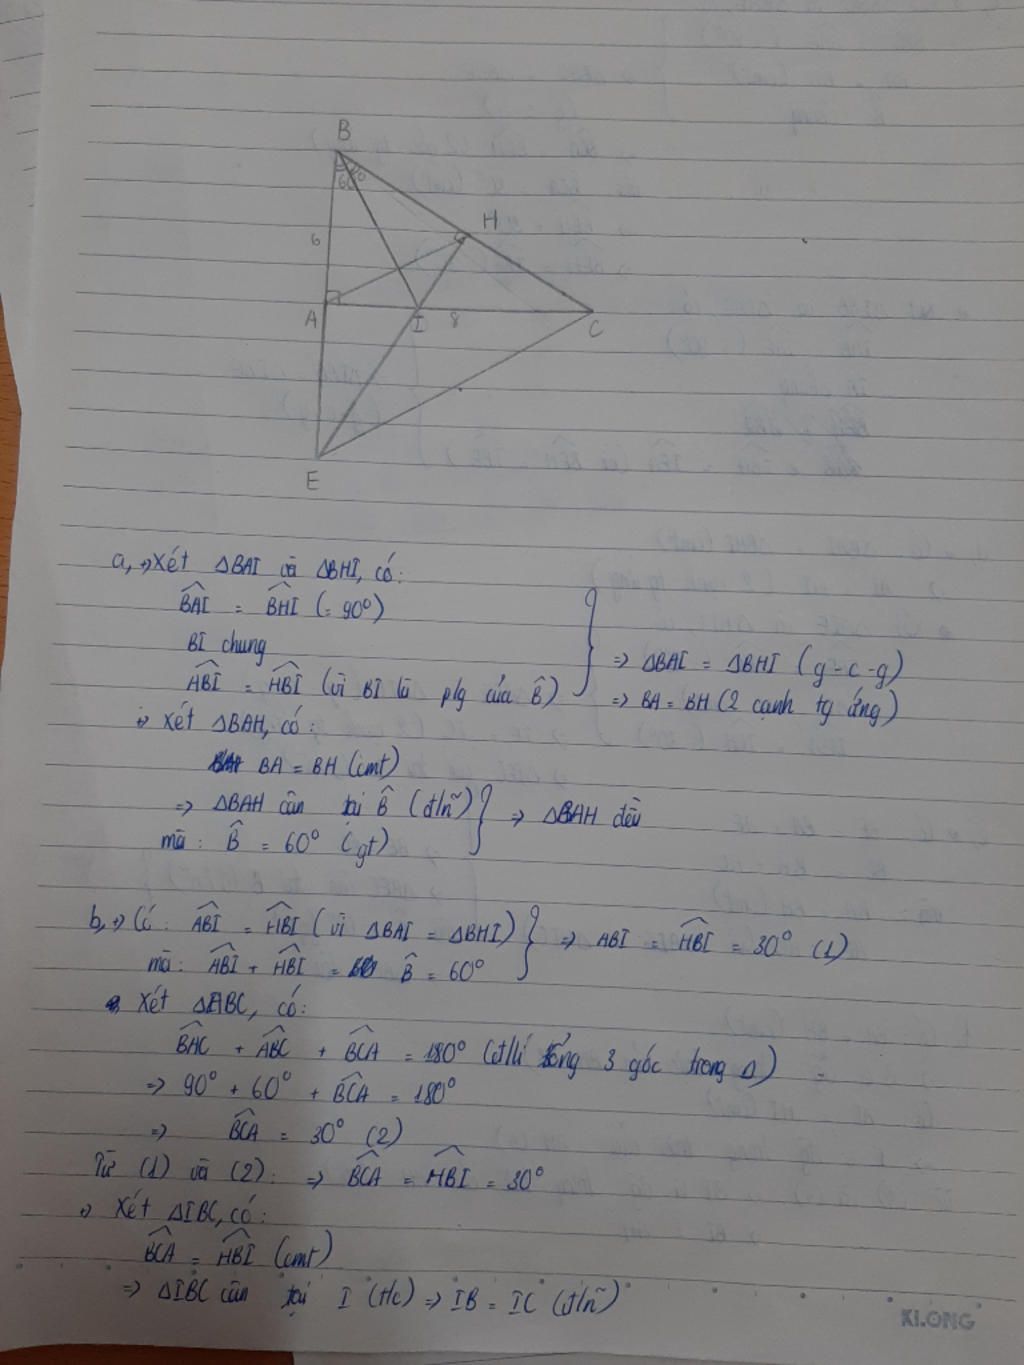 B
60°
6
H
A
I
8
C
E
a, +, Xét ΔBAI và ΔBHI, có:
BAI = BHI (= 90°)
BI chung
ABI = HBI (vì BI là plg của B)
=> ΔBAI = ΔBHI (g-c-g)
=> BA = BH (2 cạnh tg ứng)
+, Xét ΔBAH, có:
BA = BH (cmt)
=> ΔBAH cân tại B (đ/n)
mà: B = 60° (gt)
=> ΔBAH đều
b, +, Có: ABI = HBI (vì ΔBAI = ΔBHI)
mà: ABI + HBI = B = 60°
=> ABI = HBI = 30° (1)
Xét ΔABC, có:
BAC + ABC + BCA = 180° (đ/lí tổng 3 góc trong Δ)
=> 90° + 60° + BCA = 180°
=> BCA = 30° (2)
Từ (1) và (2): => BCA = HBI = 30°
+, Xét ΔIBC, có:
BCA = HBI (cmt)
=> ΔIBC cân tại I (t/c) => IB = IC (đ/n)
KLONG